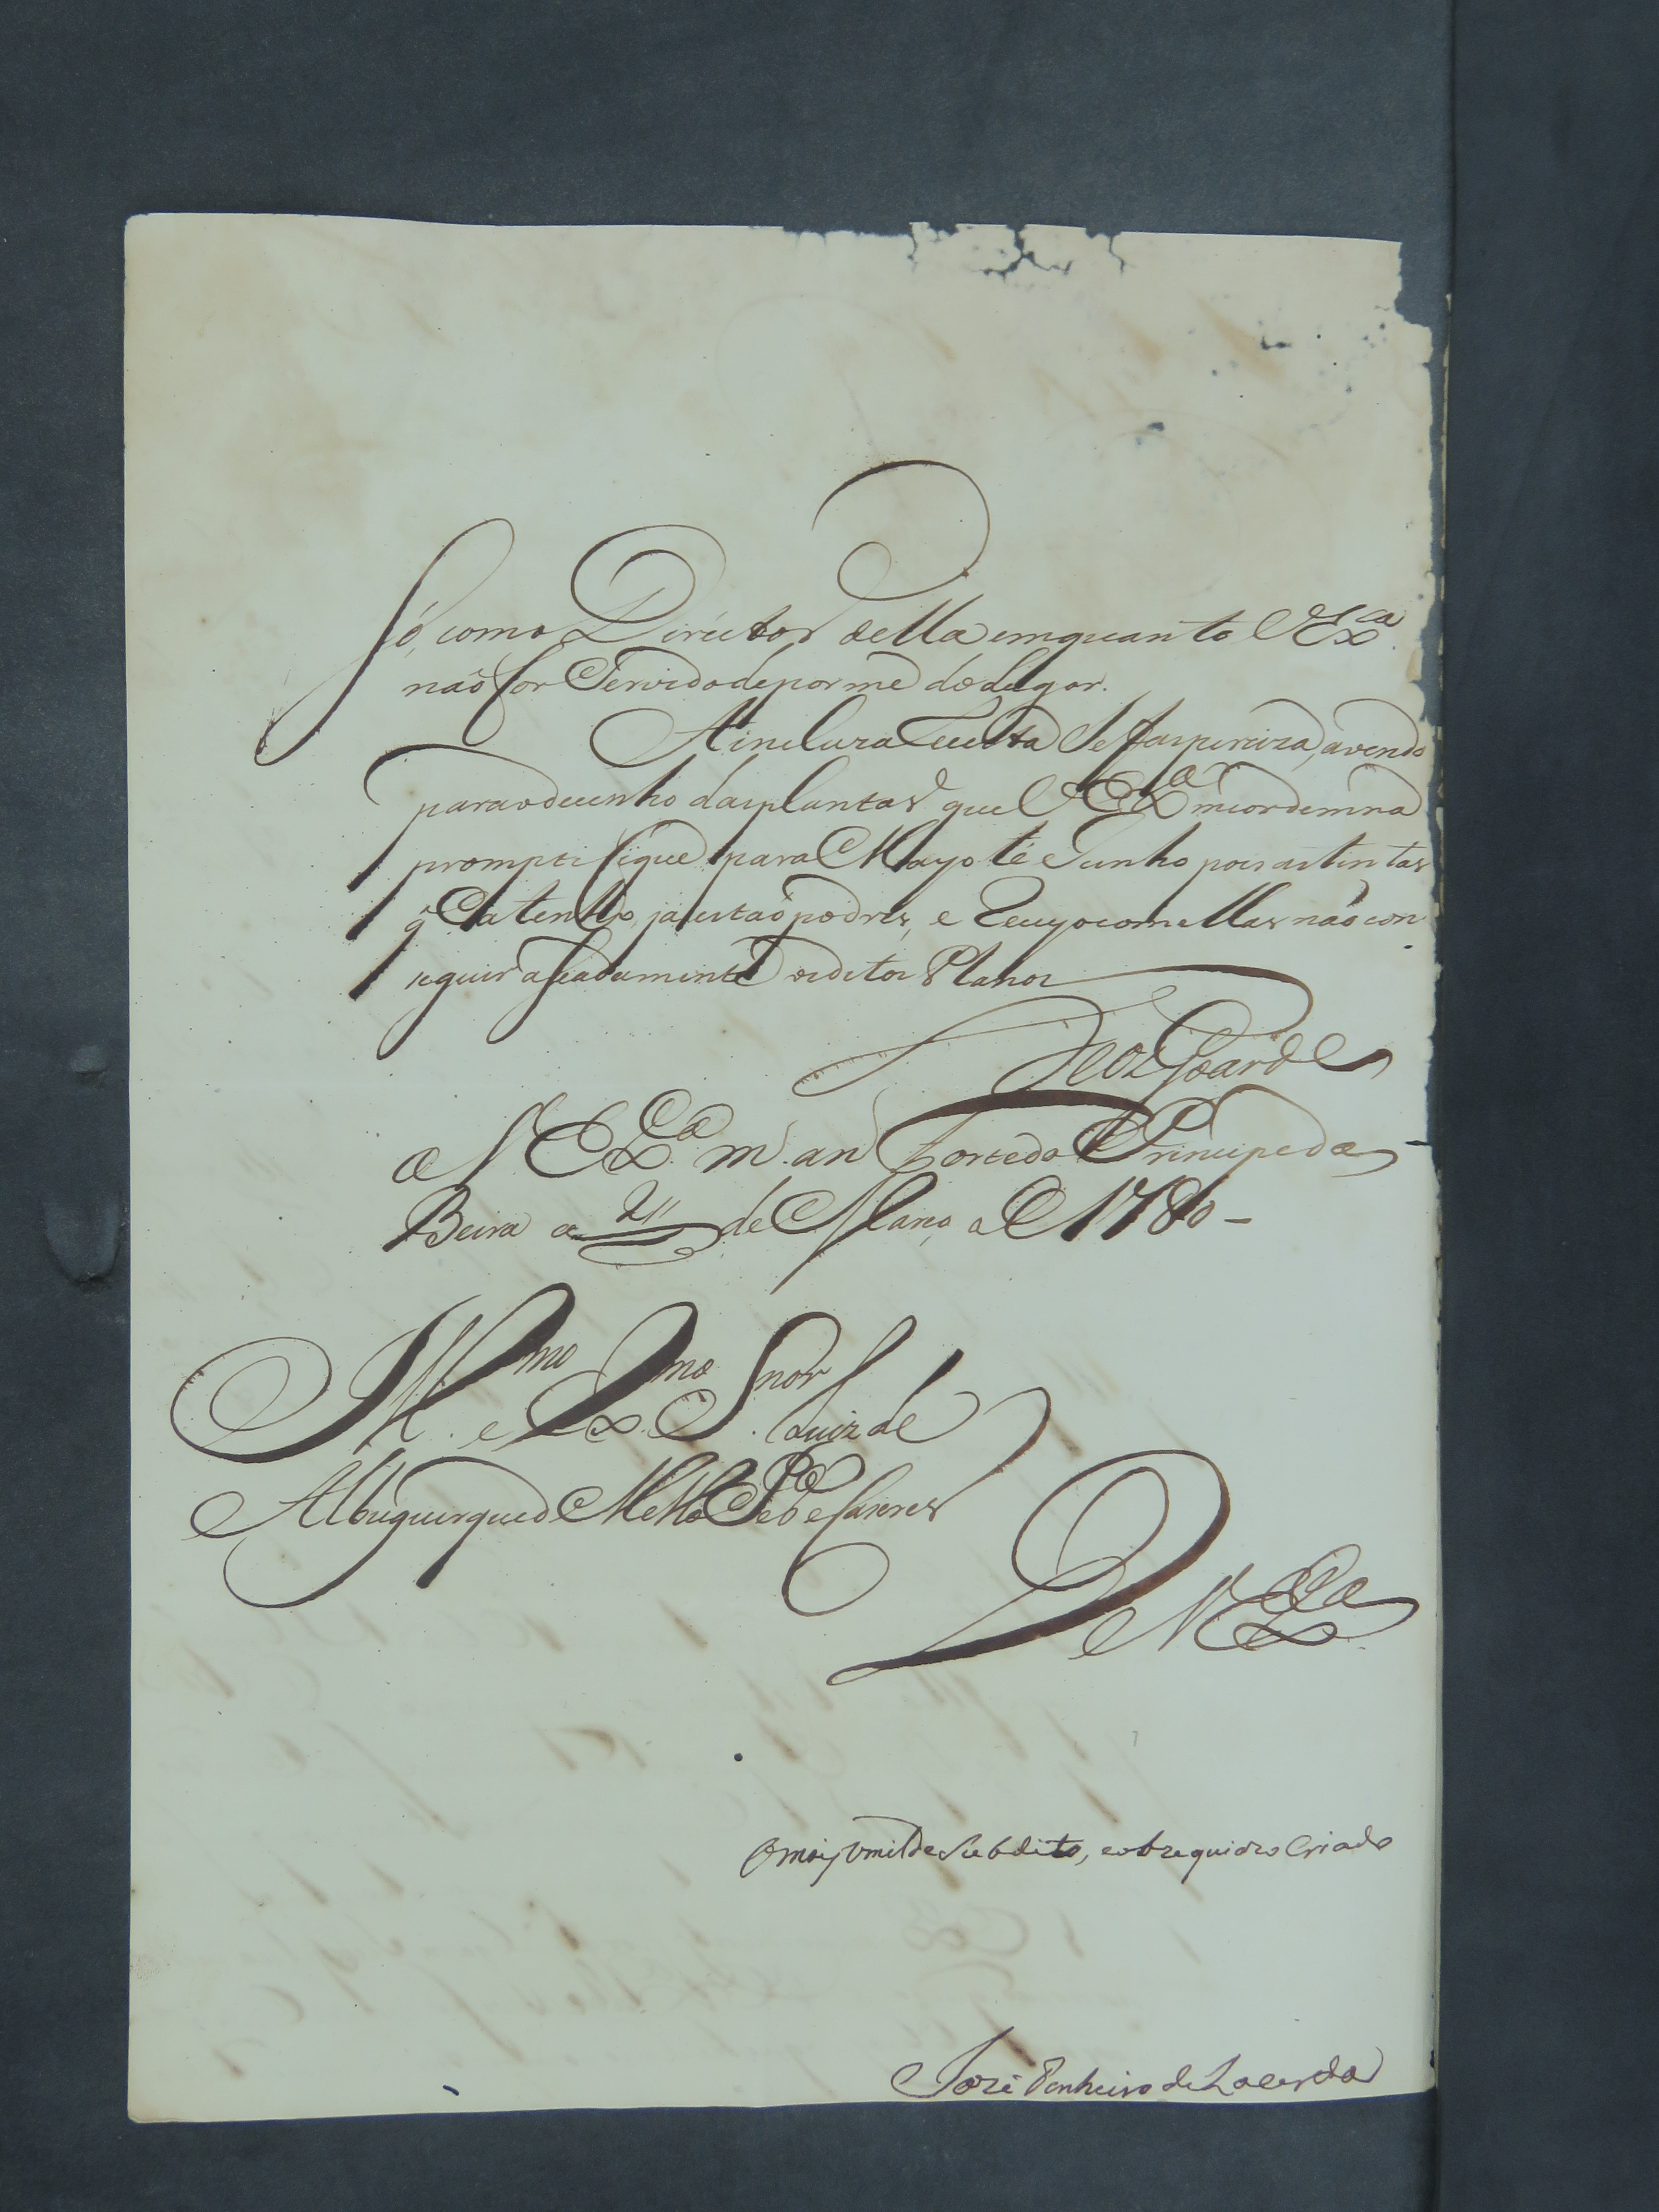 Só, como Diréctor della emquanto VEx.ª
não for Servido depor me do lugar.
A incluza SeSta Se faz preciza, avendo
para o dezenho das plantas que VEx.ª me ordenna
promptifique para Mayo té Junho pois as tintas
q̃ Ca tenho, ja estaõ podres, e Receyo com ellas não con
seguir aseadamente os ditos Planos
Deos Goarde
a VEx.ª m. an Forte do Principe da
Beira a 21 de Março de 1780 -
Ill.mo e Ex.mo Snor Luiz de
Albuquerque de Mello Per.ª e Caseres
De VEx.ª
O mais Umilde Subdito, e obzequiozo Criado
Jozé Pinheiro de Lacerda